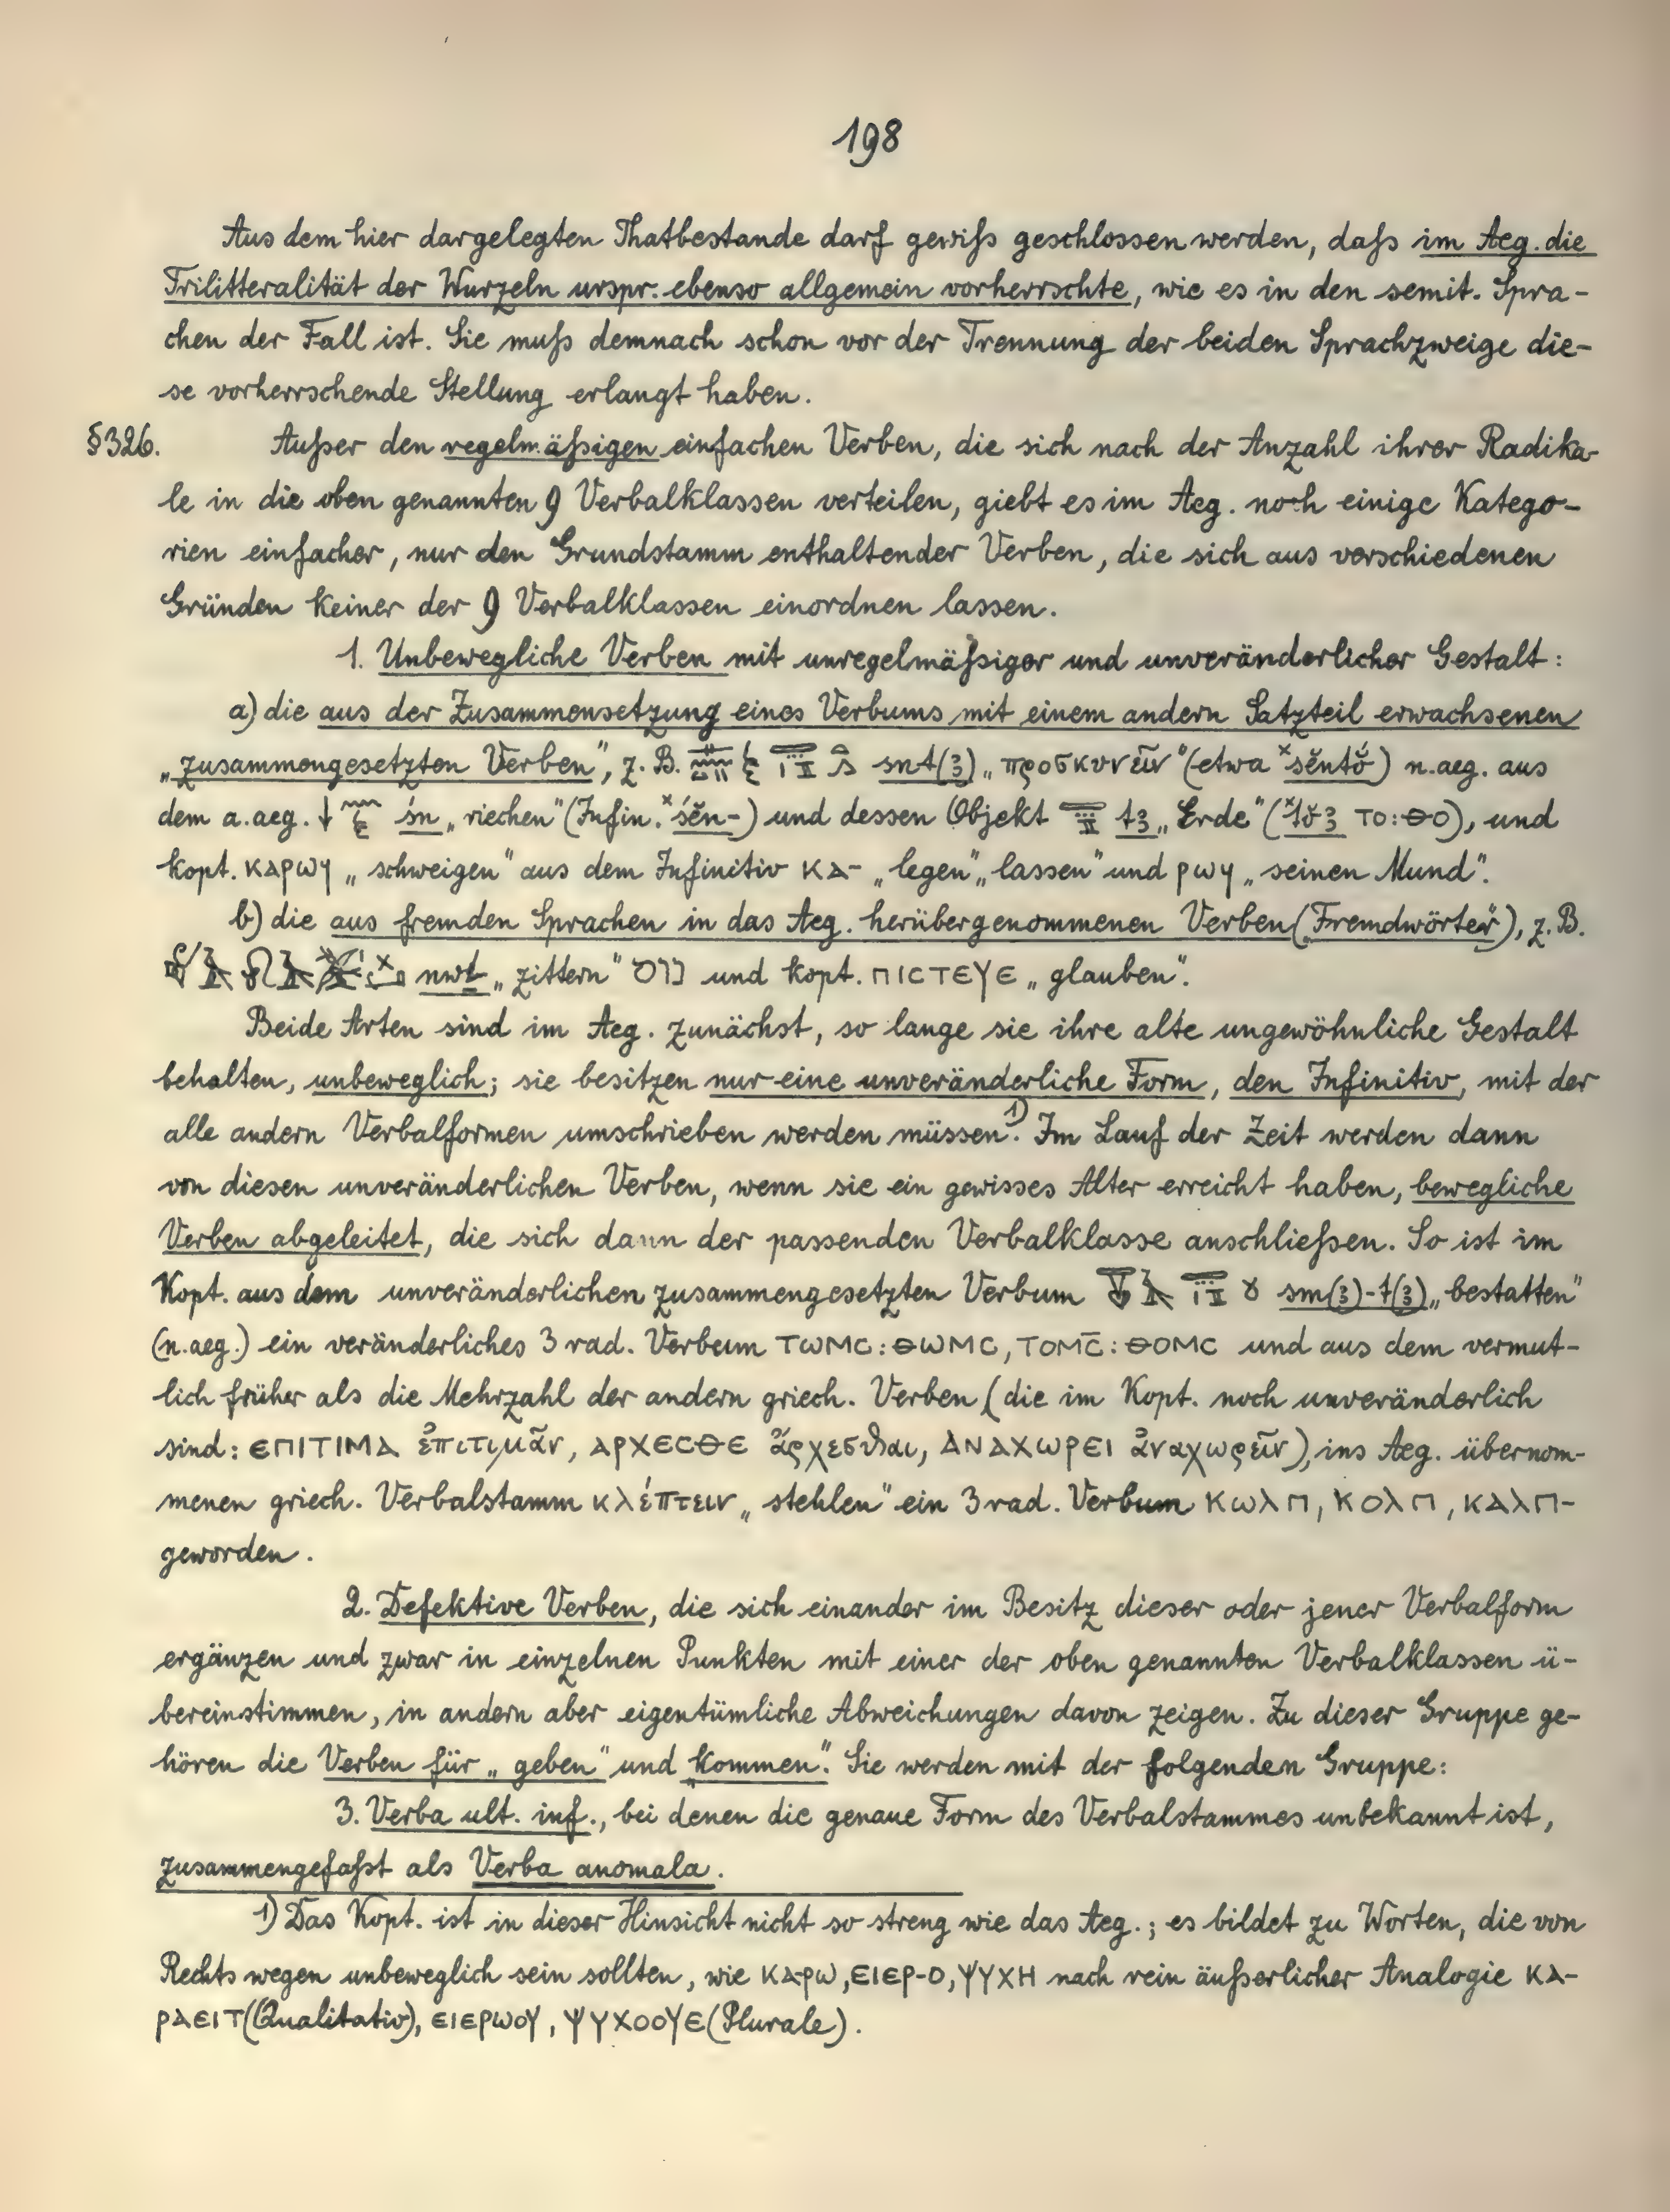 198
Aus dem hier dargelegten Thatbestande darf gewiß geschlossen werden, daß im Aeg. die
Trilitteralität der Wurzeln urspr. ebenso allgemein vorherrschte, wie es in den semit. Spra-
chen der Fall ist. Sie muß demnach schon vor der Trennung der beiden Sprachzweige die-
se vorherrschende Stellung erlangt haben.
§326. Außer den regelmäßigen einfachen Verben, die sich nach der Anzahl ihrer Radika-
le in die oben genannten 9 Verbalklassen verteilen, giebt es im Aeg. noch einige Katego-
rien einfacher, nur den Grundstamm enthaltender Verben, die sich aus verschiedenen
Gründen keiner der 9 Verbalklassen einordnen lassen.
1. Unbewegliche Verben mit unregelmäßiger und unveränderlicher Gestalt:
a) die aus der Zusammensetzung eines Verbums mit einem andern Satzteil erwachsenen
„zusammengesetzten Verben", z. B. snt(ꜣ) „προσκυνεῖν" (etwa ˣsĕntŏ́) n.aeg. aus
dem a.aeg. śn „riechen" (Infin. ˣśĕn-) und dessen Objekt tꜣ „Erde" (ˣtŏꜣ ⲧⲟ:ⲑⲟ), und
kopt. ⲕⲁⲣⲱϥ „schweigen" aus dem Infinitiv ⲕⲁ- „legen" „lassen" und ⲣⲱϥ „seinen Mund".
b) die aus fremden Sprachen in das Aeg. herübergenommenen Verben (Fremdwörter), z. B.
nwṭ „zittern" נוט und kopt. ⲡⲓⲥⲧⲉⲩⲉ „glauben".
Beide Arten sind im Aeg. zunächst, so lange sie ihre alte ungewöhnliche Gestalt
behalten, unbeweglich; sie besitzen nur eine unveränderliche Form, den Infinitiv, mit der
alle andern Verbalformen umschrieben werden müssen.¹⁾ Im Lauf der Zeit werden dann
von diesen unveränderlichen Verben, wenn sie ein gewisses Alter erreicht haben, bewegliche
Verben abgeleitet, die sich dann der passenden Verbalklasse anschließen. So ist im
Kopt. aus dem unveränderlichen zusammengesetzten Verbum sm(ꜣ)-t(ꜣ) „bestatten"
(n.aeg.) ein veränderliches 3 rad. Verbum ⲧⲱⲙⲥ:ⲑⲱⲙⲥ, ⲧⲟⲙⲥ̄:ⲑⲟⲙⲥ und aus dem vermut-
lich früher als die Mehrzahl der andern griech. Verben (die im Kopt. noch unveränderlich
sind: ⲉⲡⲓⲧⲓⲙⲁ ἐπιτιμᾶν, ⲁⲣⲭⲉⲥⲑⲉ ἄρχεσθαι, ⲁⲛⲁⲭⲱⲣⲉⲓ ἀναχωρεῖν), ins Aeg. übernom-
menen griech. Verbalstamm κλέπτειν „stehlen" ein 3 rad. Verbum ⲕⲱⲗⲡ, ⲕⲟⲗⲡ, ⲕⲁⲗⲡ-
geworden.
2. Defektive Verben, die sich einander im Besitz dieser oder jener Verbalform
ergänzen und zwar in einzelnen Punkten mit einer der oben genannten Verbalklassen ü-
bereinstimmen, in andern aber eigentümliche Abweichungen davon zeigen. Zu dieser Gruppe ge-
hören die Verben für „geben" und „kommen". Sie werden mit der folgenden Gruppe:
3. Verba ult. inf., bei denen die genaue Form des Verbalstammes unbekannt ist,
zusammengefaßt als Verba anomala.
1) Das Kopt. ist in dieser Hinsicht nicht so streng wie das Aeg.; es bildet zu Worten, die von
Rechts wegen unbeweglich sein sollten, wie ⲕⲁ-ⲣⲱ, ⲉⲓⲉⲣ-ⲟ, ⲯⲩⲭⲏ nach rein äußerlicher Analogie ⲕⲁ-
ⲣⲁⲉⲓⲧ (Qualitativ), ⲉⲓⲉⲣⲱⲟⲩ, ⲯⲩⲭⲟⲟⲩⲉ (Plurale).